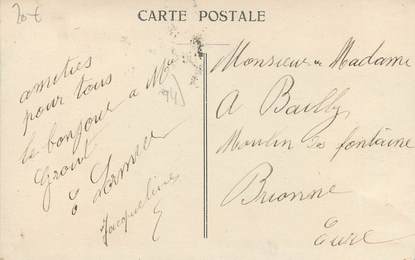 CARTE POSTALE
20 €
amities
pour tous
le bonjour a Mr
Jacqueline
94
Monsieur & Madame
A Bailly
Moulin de fontaine
Brionne
Eure